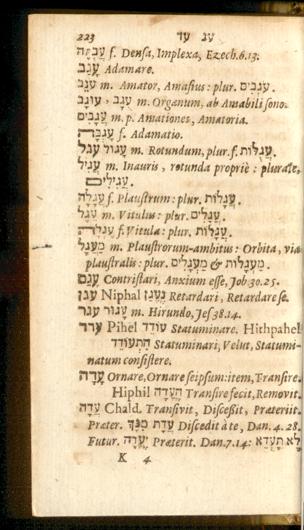 223 עג עד
עֲבֻתָּה f. Densa, Implexa, Ezech. 6. 13.
עָגַב Adamare.
עֹגֵב m. Amator, Amasius: plur. עֹגְבִים.
עוּגָב, עֻגָב m. Organum, ab Amabili sono.
עֲגָבִים m. p. Amationes, Amatoria.
עֲגָבָה f. Adamatio.
עגל עָגוֹל m. Rotundum, plur. f. עֲגֻלּוֹת.
עָגִיל m. Inauris, rotunda propriè: plurale,
עֲגִילִים.
עֲגָלָה f. Plaustrum: plur. עֲגָלוֹת.
עֵגֶל m. Vitulus: plur. עֲגָלִים.
עֶגְלָה f. Vitula: plur. עֶגְלוֹת.
מַעְגָּל m. Plaustrorum-ambitus: Orbita, via
plaustralis: plur. מַעְגָּלִים & מַעְגָּלוֹת.
עָגַם Contristari, Anxium esse, Job 30. 25.
עגן Niphal נֶעְגַּן Retardari, Retardare se.
עגר עָגוּר m. Hirundo, Jes 38. 14.
עדד Pihel עוֹדֵד Statuminare. Hithpahel
הִתְעוֹדֵד Statuminari, Velut, Statumi-
natum consistere.
עָדָה Ornare, Ornare seipsum: item, Transire.
Hiphil הֶעְדָּה Transire fecit, Removit.
עֲדָה Chald. Transivit, Discessit, Præteriit.
Præter. עֲדָת מִנָּךְ Discedit à te, Dan. 4. 28.
Futur. יֶעְדֵּה Præterit. Dan. 7. 14: לָא תֶעְדֵּא
K 4